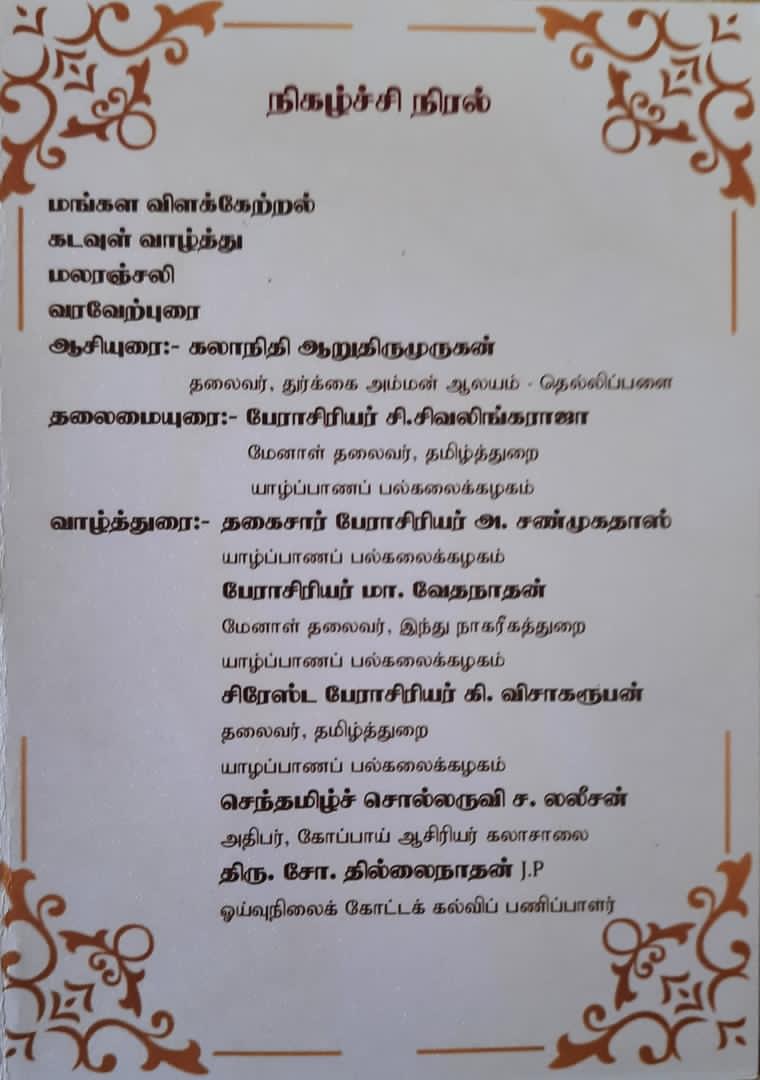 நிகழ்ச்சி நிரல்
மங்கள விளக்கேற்றல்
கடவுள் வாழ்த்து
மலரஞ்சலி
வரவேற்புரை
ஆசியுரை:- கலாநிதி ஆறுதிருமுருகன்
தலைவர், துர்க்கை அம்மன் ஆலயம் - தெல்லிப்பளை
தலைமையுரை:- பேராசிரியர் சி.சிவலிங்கராஜா
மேனாள் தலைவர், தமிழ்த்துறை
யாழ்ப்பாணப் பல்கலைக்கழகம்
வாழ்த்துரை:- தகைசார் பேராசிரியர் அ. சண்முகதாஸ்
யாழ்ப்பாணப் பல்கலைக்கழகம்
பேராசிரியர் மா. வேதநாதன்
மேனாள் தலைவர், இந்து நாகரீகத்துறை
யாழ்ப்பாணப் பல்கலைக்கழகம்
சிரேஸ்ட பேராசிரியர் கி. விசாகரூபன்
தலைவர், தமிழ்த்துறை
யாழபாணப் பல்கலைக்கழகம்
செந்தமிழ்ச் சொல்லருவி ச. லலீசன்
அதிபர், கோப்பாய் ஆசிரியர் கலாசாலை
திரு. சோ. தில்லைநாதன் J.P
ஓய்வுநிலைக் கோட்டக் கல்விப் பணிப்பாளர்